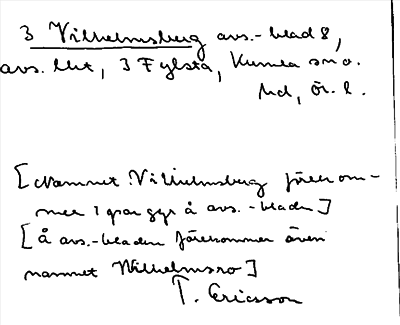 3 Vilhelmsberg avs.-blad 8,
avs. till, 3 Fylsta, Kumla sn o.
hd, Ör. l.
[Namnet Vilhelmsberg förekom-
mer 2 gånger å avs.-bladen]
[Å avs.-bladen förekommer även
namnet Wilhelmsro]
T. Ericsson